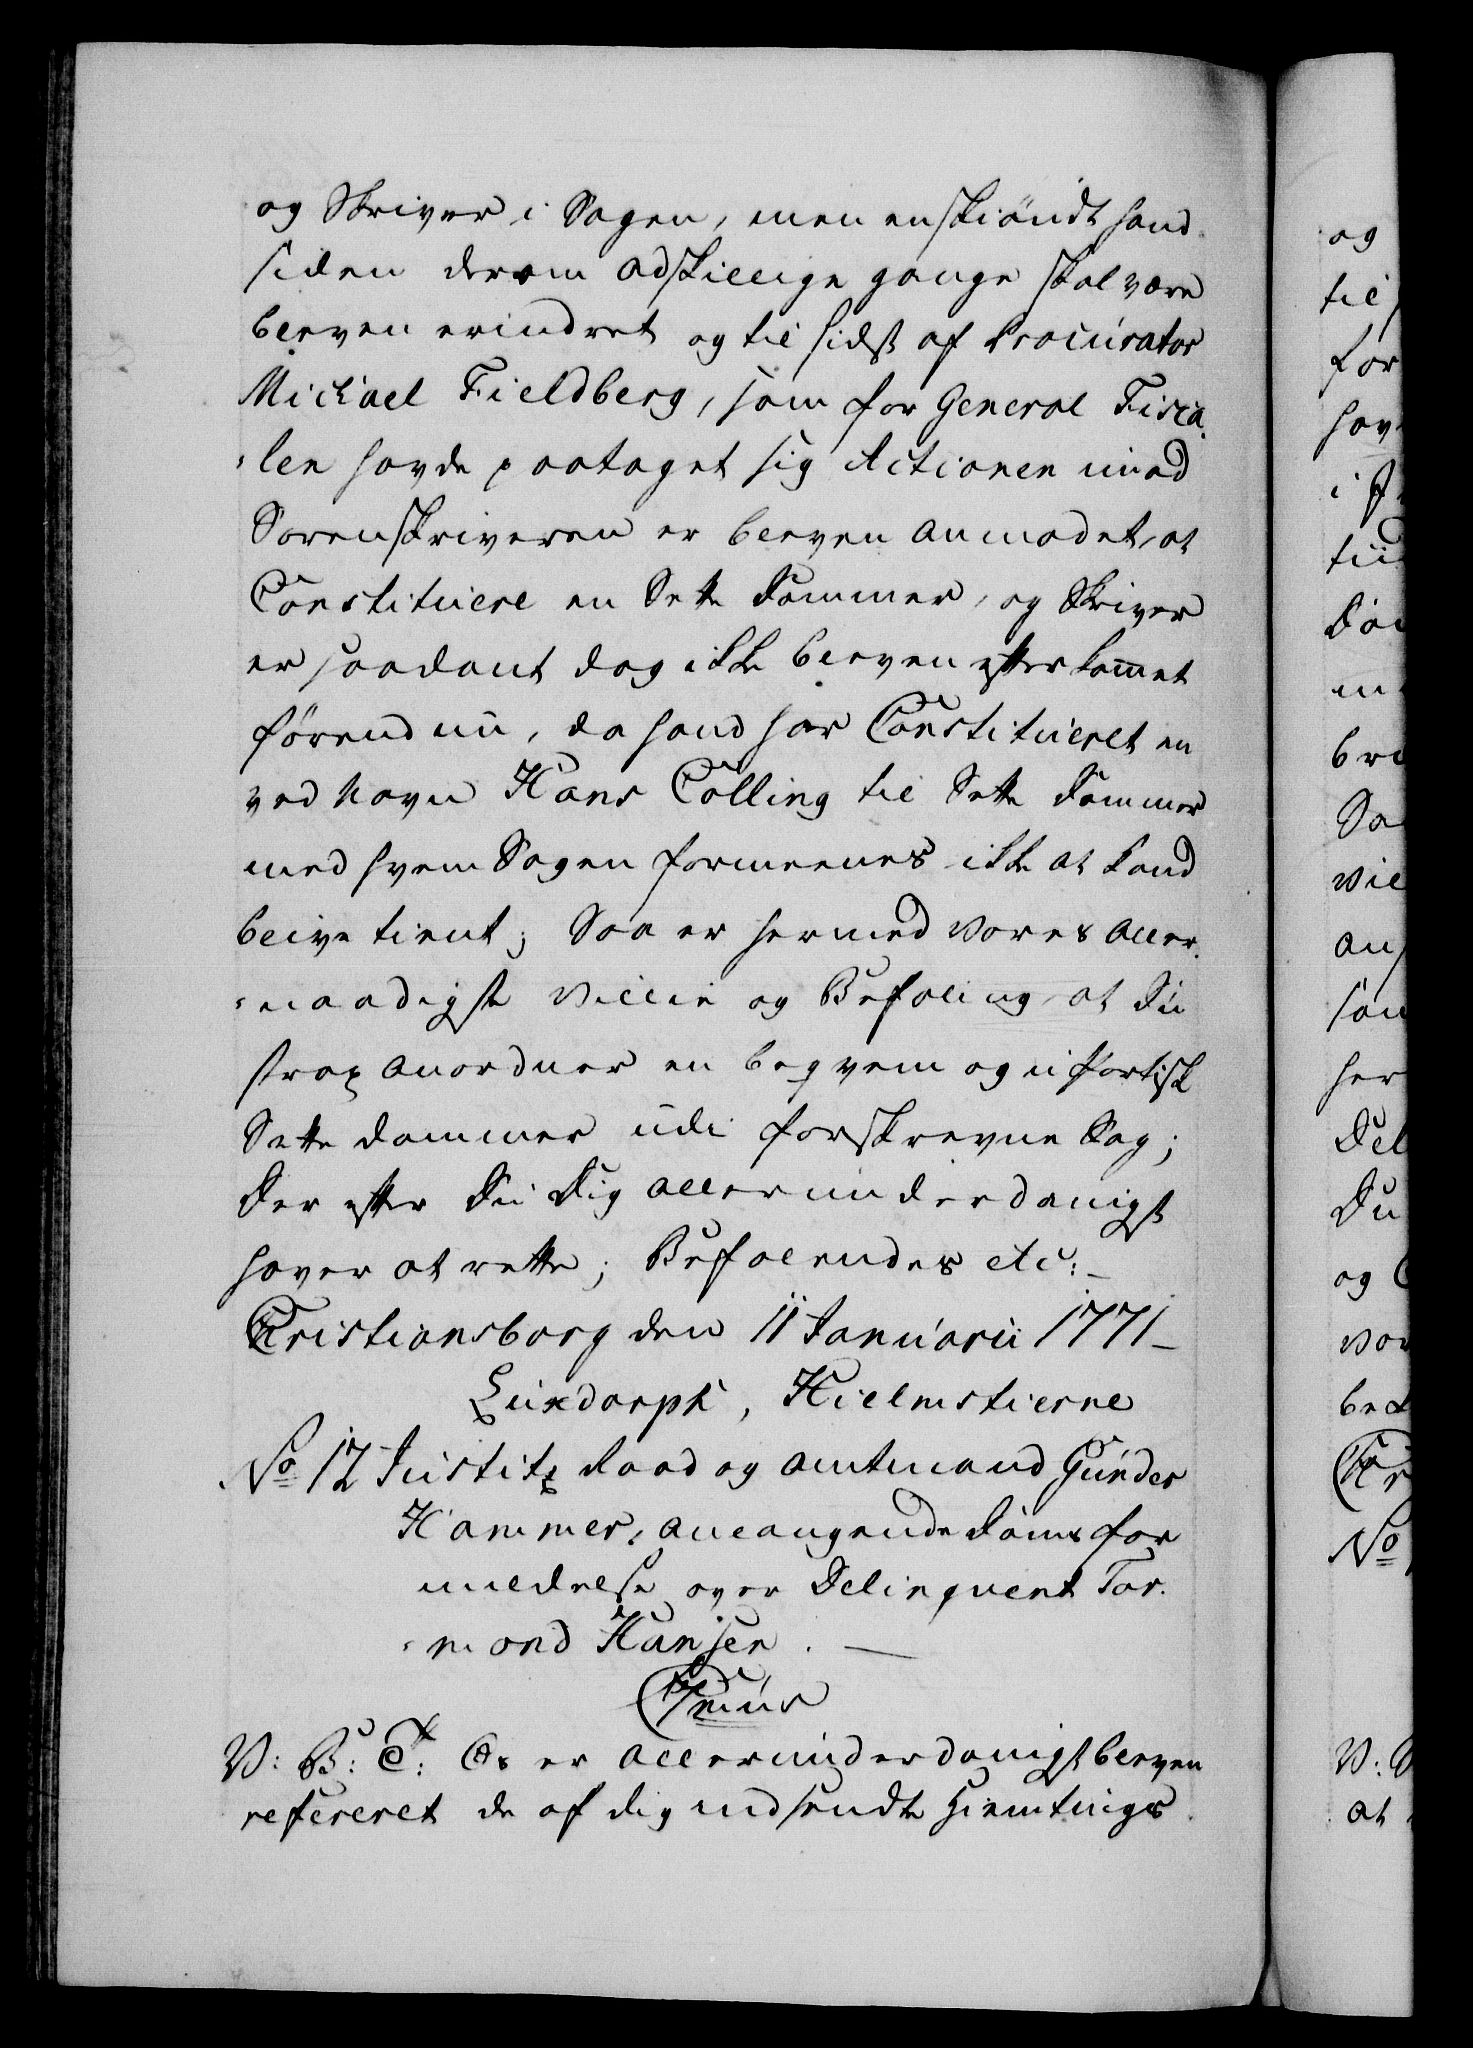 og Skriver i Sagen, men enskiöndt hand
siden derom adskillige gange skal være
bleven erindret og til sidst af Procurator
Michael Fieldberg, som for General Fisca
-len havde paataget sig Actionen imod
Sorenskriveren er bleven anmodet, at
Constituere en Sette Dommer, og Skriver
er saadant dog ikke bleven efterkommet
förend nu, da hand har Constitueret en
ved Navn Hans Cölling til Sette Dommer
med hvem Sagen formeenes ikke at kand
blive tient; Saa er hermed vores aller
-naadigste Villie og Befaling, at Du
strax anordner en beqvem og upartisk
Sette dommer udi forskrevne Sag;
Der efter Du Dig allerunderdanigst
haver at rette; Befalendes etc: _
Christiansborg den 11 Januarii 1771 _
Luxdorph, Hielmstierne
No 12 Justitz Raad og Amtmand Günder
Hammer, anlangende Doms for
mildelse over Delinquent Tor
-mond Hansen. —
V: B: T: Os er allerunderdanigst bleven
refereret de af dig indsendte Hiemtings
og
til
for
hav
i
Dom
br
Sa
vil
an
her
Del
Du
og
vor
Chr
No
V:
at